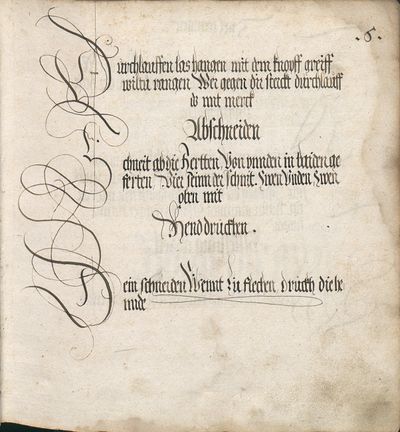 .6.
Durchlauffen las hangen mit dem knopff greiff
wiltu rangen Wer gegen dir sterckt durchlauff
do mit merck
Abschneiden
Schneit ab die hertten Von unnden in baiden ge
ferten Vier seinn der schnit. Zwen Unden Zwen
oben mit
Hend druckhen.
Dein schneiden Wennt Zu flechen druckh die he
nnde